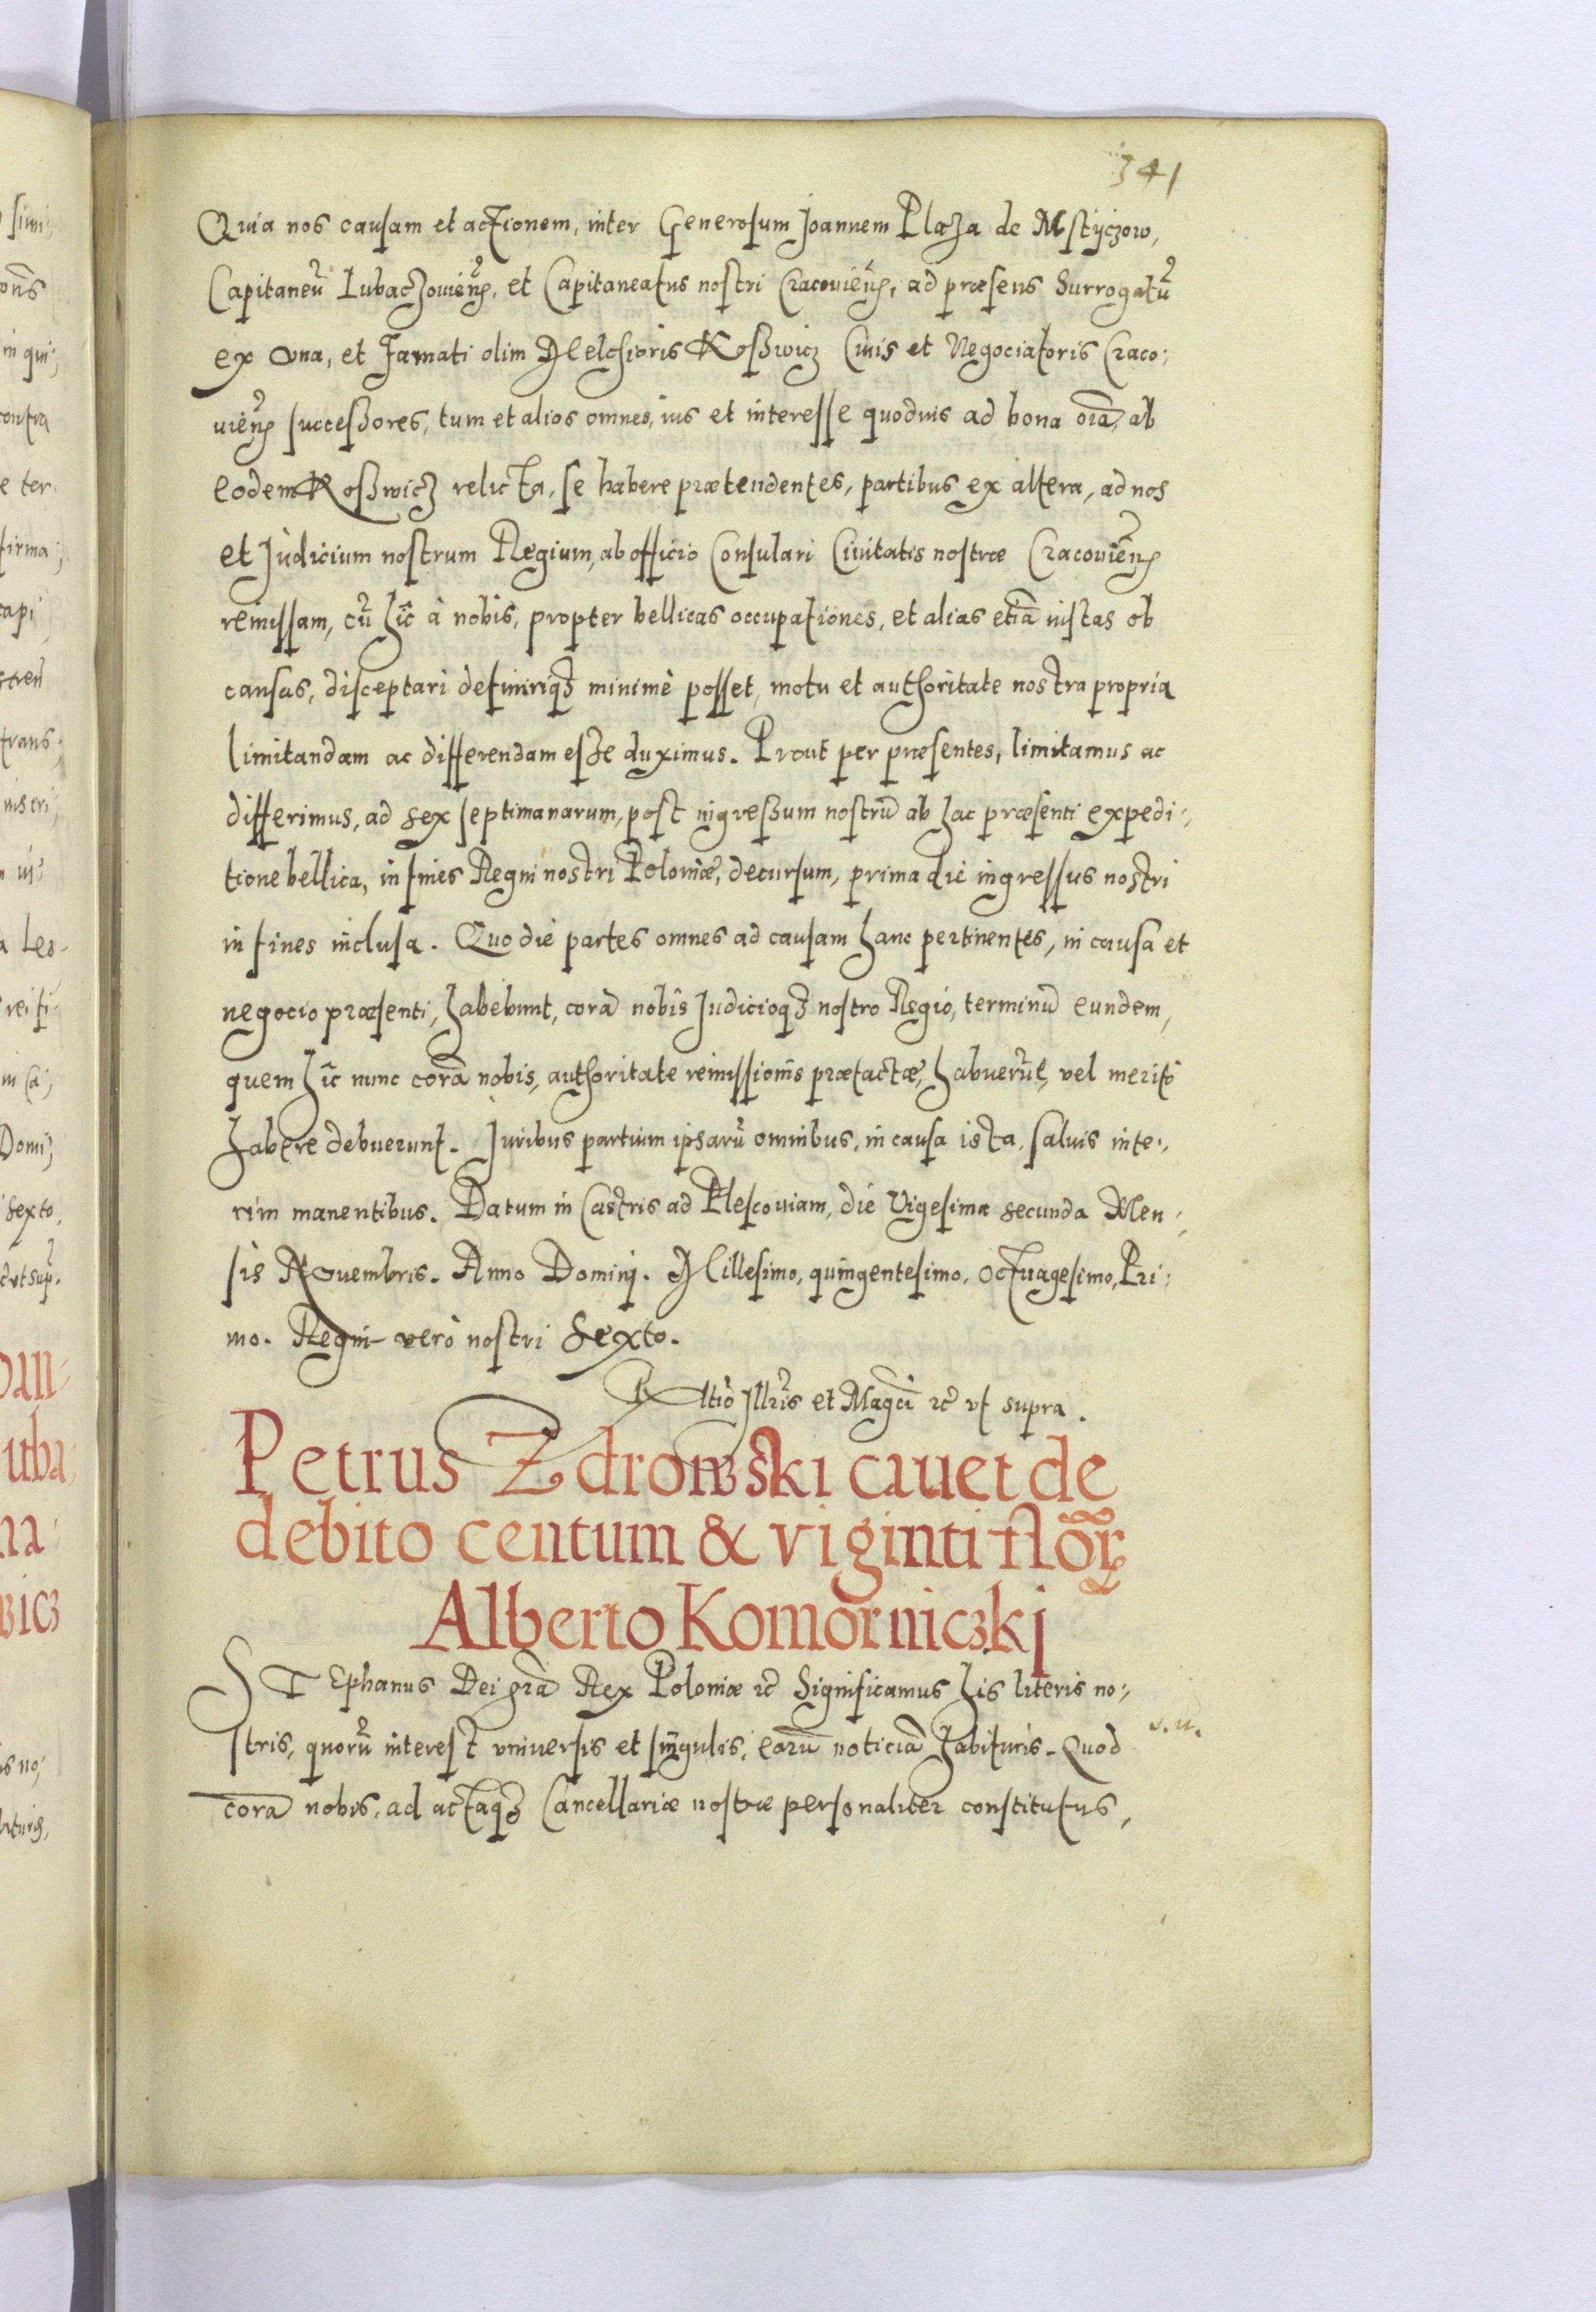 341
Quia nos causam et actionem, inter Generosum Joannem Plaza de Mstyczow,
Capitaneũ Lubaczouieñ, et Capitaneatus nostri Cracouieñ, ad præsens Surrogatũ
ex vna, et Famati olim Melchioris Koßwicz Ciuis et Negociatoris Craco:
uieñ successores, tum et alios omnes, ius et interesse quoduis ad bona oĩa, ab
eodem Koßwicz relicta, se habere prætendentes, partibus ex altera, ad nos
et Judicium nostrum Regium, ab officio Consulari Ciuitatis nostræ Cracouieñ
remissam, cũ hic à nobis, propter bellicas occupationes, et alias etiã iustas ob
causas, disceptari definiriq3 minimè posset, motu et authoritate nostra propria
limitandam ac differendam esse duximus. Prout per præsentes, limitamus ac
differimus, ad sex septimanarum, post ingressum nostrũ ab hac præsenti expedi:,
tione bellica, in fines Regni nostri Poloniæ, decursum, prima die ingressus nostri
in fines inclusa. Quo die partes omnes ad causam hanc pertinentes, in causa et
negocio præsenti, habebunt, corã nobis Judicioq3 nostro Regio, terminũ eundem,
quem hic nunc corã nobis, authoritate remissionis prætactæ, habuerũt, vel meritò
habere debuerunt. Juribus partium ipsarũ omnibus, in causa ista, saluis inte:,
rim manentibus. Datum in Castris ad Plescouiam, die Vigesima secunda Men:,
sis Nouembris. Anno Domini. Millesimo, quingentesimo, Octuagesimo, Pri:
mo. Regni verò nostri Sexto.
Rltiõ Illris et Magci rc̃ vt supra.
Petrus Zdrowski cauet de
debito centum & viginti flor̃
Alberto Komorniczkj
STEphanus Dei grã Rex Poloniæ rc̃ Significamus his literis no:,
stris, quorũ interest vniuersis et singulis, earũ noticiã habituris. Quod
corã nobis, ad actaq3 Cancellariæ nostræ personaliter constitutus,